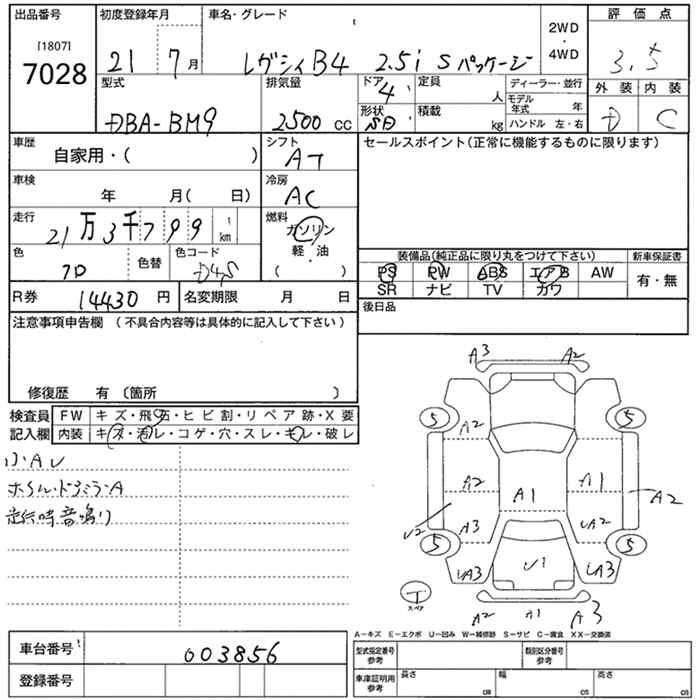 出品番号
[1807]
7028
初度登録年月
21 7月
車名・グレード
レガシィB4 2.5i Sパッケージ
2WD
4WD
評価点
3.5
外装 内装
D C
型式
DBA-BM9
排気量
2500 CC
ドア
4
形状
SD
定員
人
積載
kg
ディーラー・並行
モデル年式 年
ハンドル 左・右
車歴
自家用・( )
シフト
AT
車検
年 月( 日)
冷房
AC
走行
21万3千799 km
燃料
ガソリン
軽・油
( )
色
色替
色コード
D4S
R券
14430円
名変期限 月 日
セールスポイント(正常に機能するものに限ります)
装備品(純正品に限り丸をつけて下さい)
PS PW ABS エアB AW
SR ナビ TV カワ
新車保証書
有・無
後日品
注意事項申告欄 (不具合内容等は具体的に記入して下さい)
修復歴 有〔箇所 〕
検査員記入欄
FW キズ・飛石・ヒビ割・リペア跡・X要
内装 キズ・汚レ・コゲ・穴・スレ・キレ・破レ
ホイル・ドアミラーA
走行時音鳴り
A3 A2
5 5
A2
A2 A1
A1 A2
U2 A3 UA2
5 5
UA3 U1 UA3
T
スペア
A2 A1 A3
A−キズ E−エクボ U−凹み W−補修跡 S−サビ C−腐食 XX−交換済
車台番号
003856
登録番号
型式指定番号
参考
類別区分番号
参考
車庫証明用
参考
長さ cm
幅 cm
高さ cm